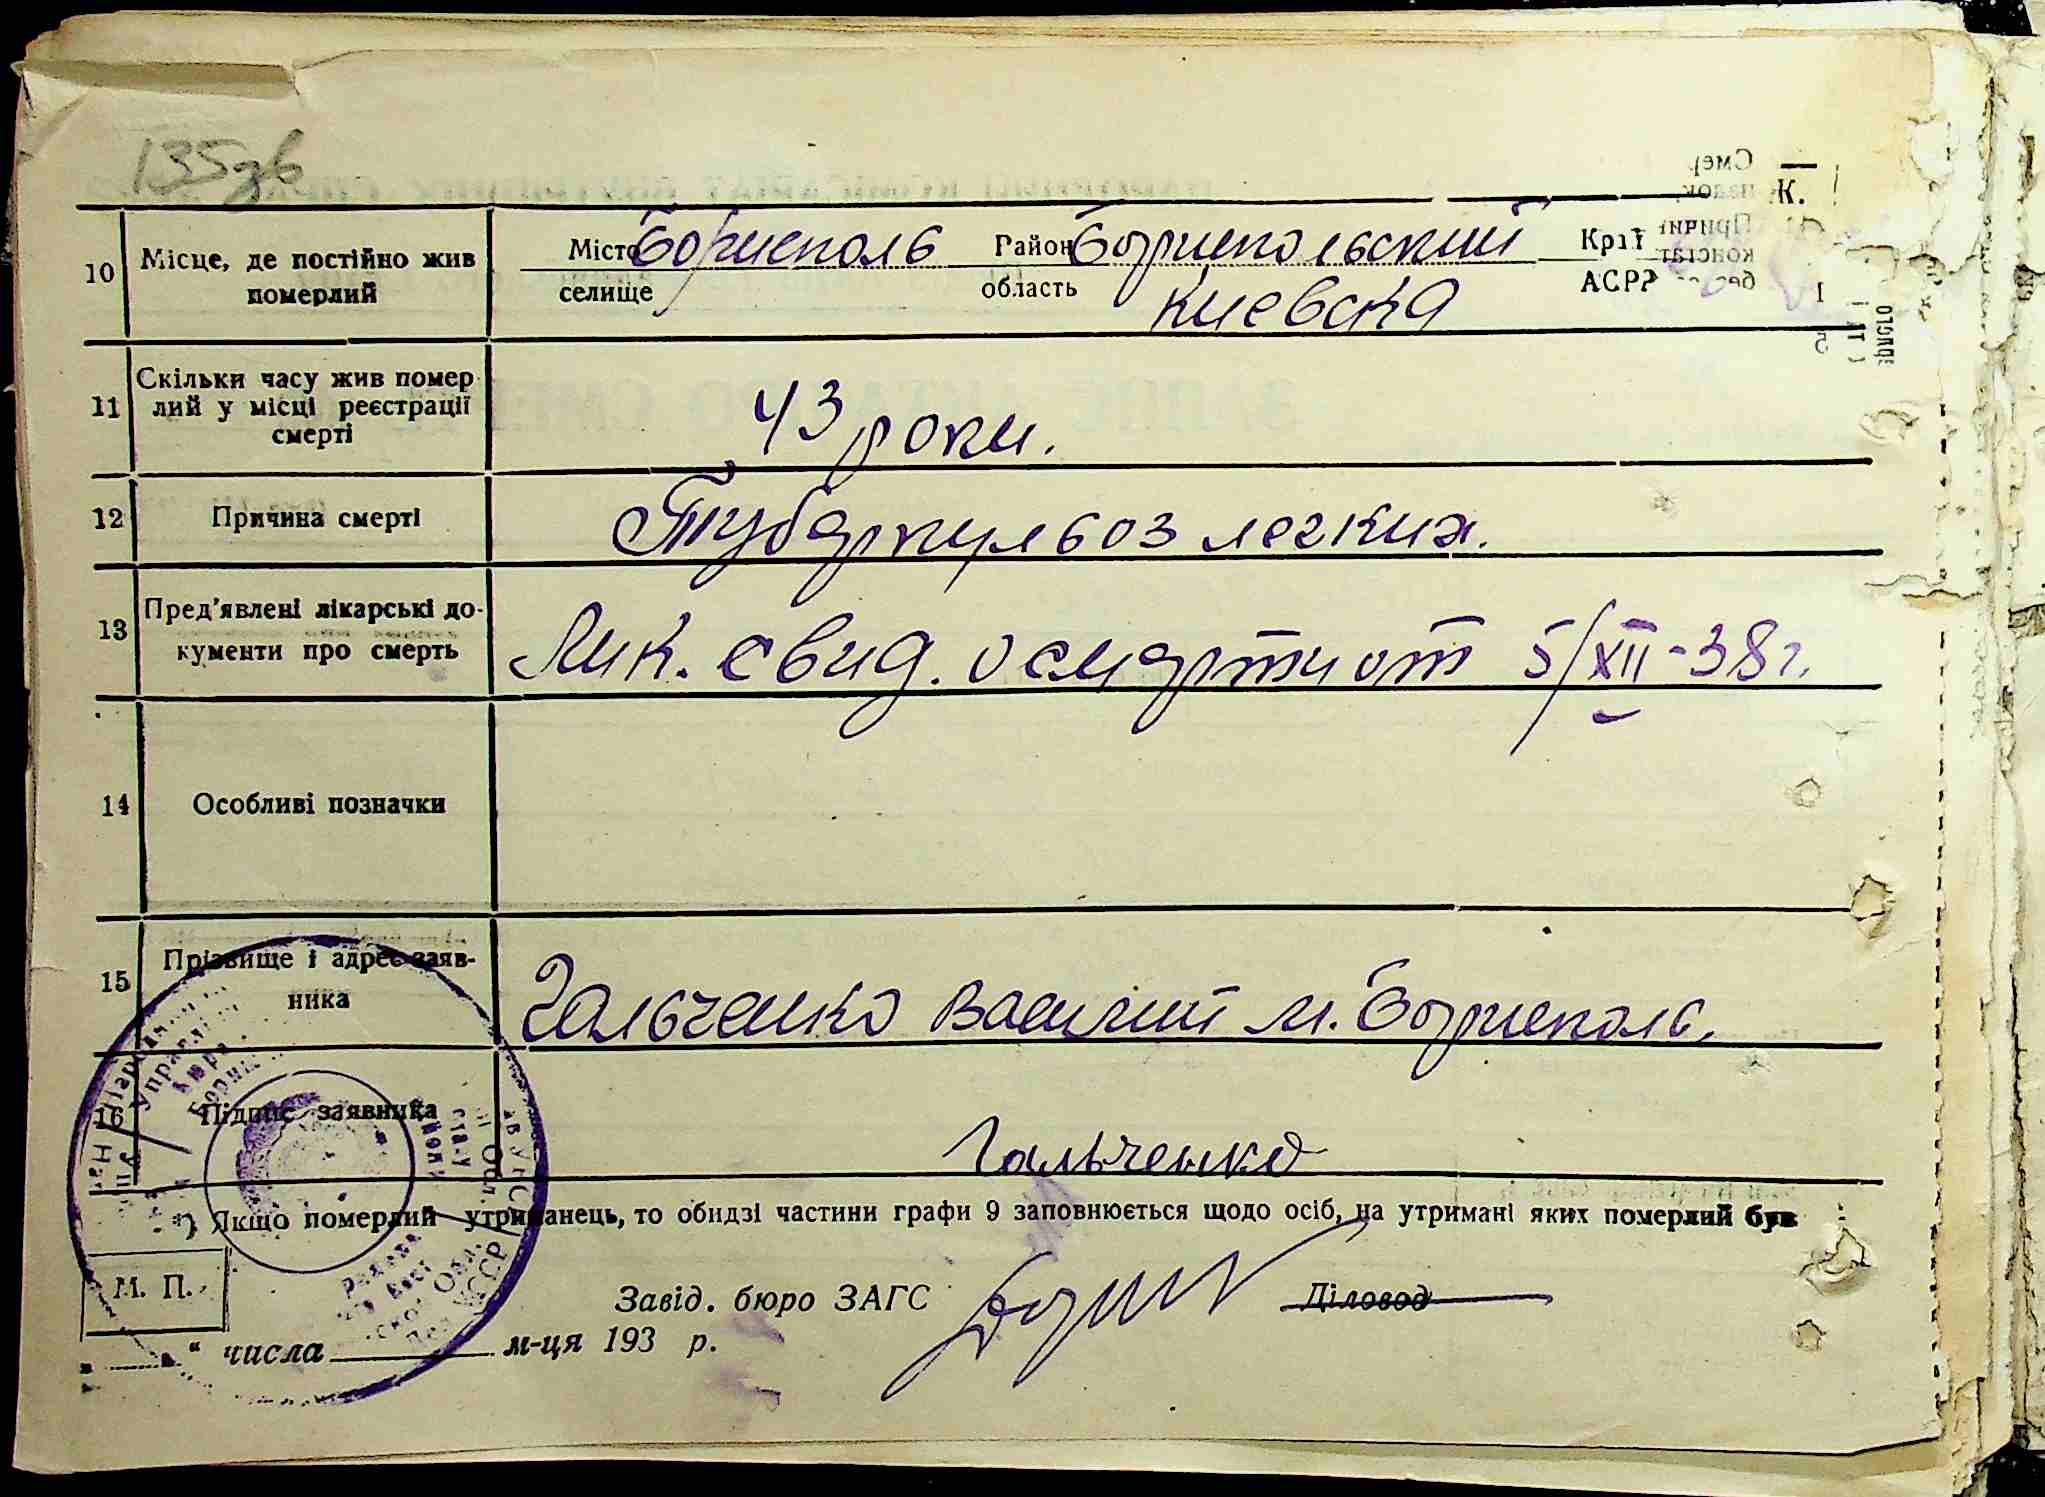 135зв
10 Місце, де постійно жив Місто Бориеполь Район Бориспольский Край
померлий селище область Киевска АСРР
11 Скільки часу жив помер
лий у місці реєстрації 43 роки.
смерті
12 Причина смерті Туберкульоз легких.
13 Пред'явлені лікарські до-
кументи про смерть Лик. свид. о смерти от 5/XII-38 г.
14 Особливі позначки
15 Прізвище і адрес заяв-
ника Гальченко Василий м. Борисполь.
16 Підпис заявника Гальченко
*) Якщо померлий утриманець, то обидзі частини графи 9 заповнюється щодо осіб, на утримані яких померлий був
М. П.
Завід. бюро ЗАГС Діловод
" " числа м-ця 193 р.